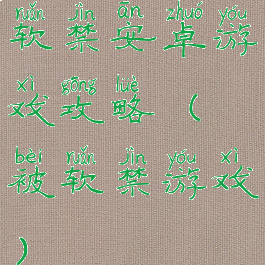 ruǎn jìn ān zhuó yóu
软禁安卓游
xì gōng lüè
戏攻略（
bèi ruǎn jìn yóu xì
被软禁游戏
）